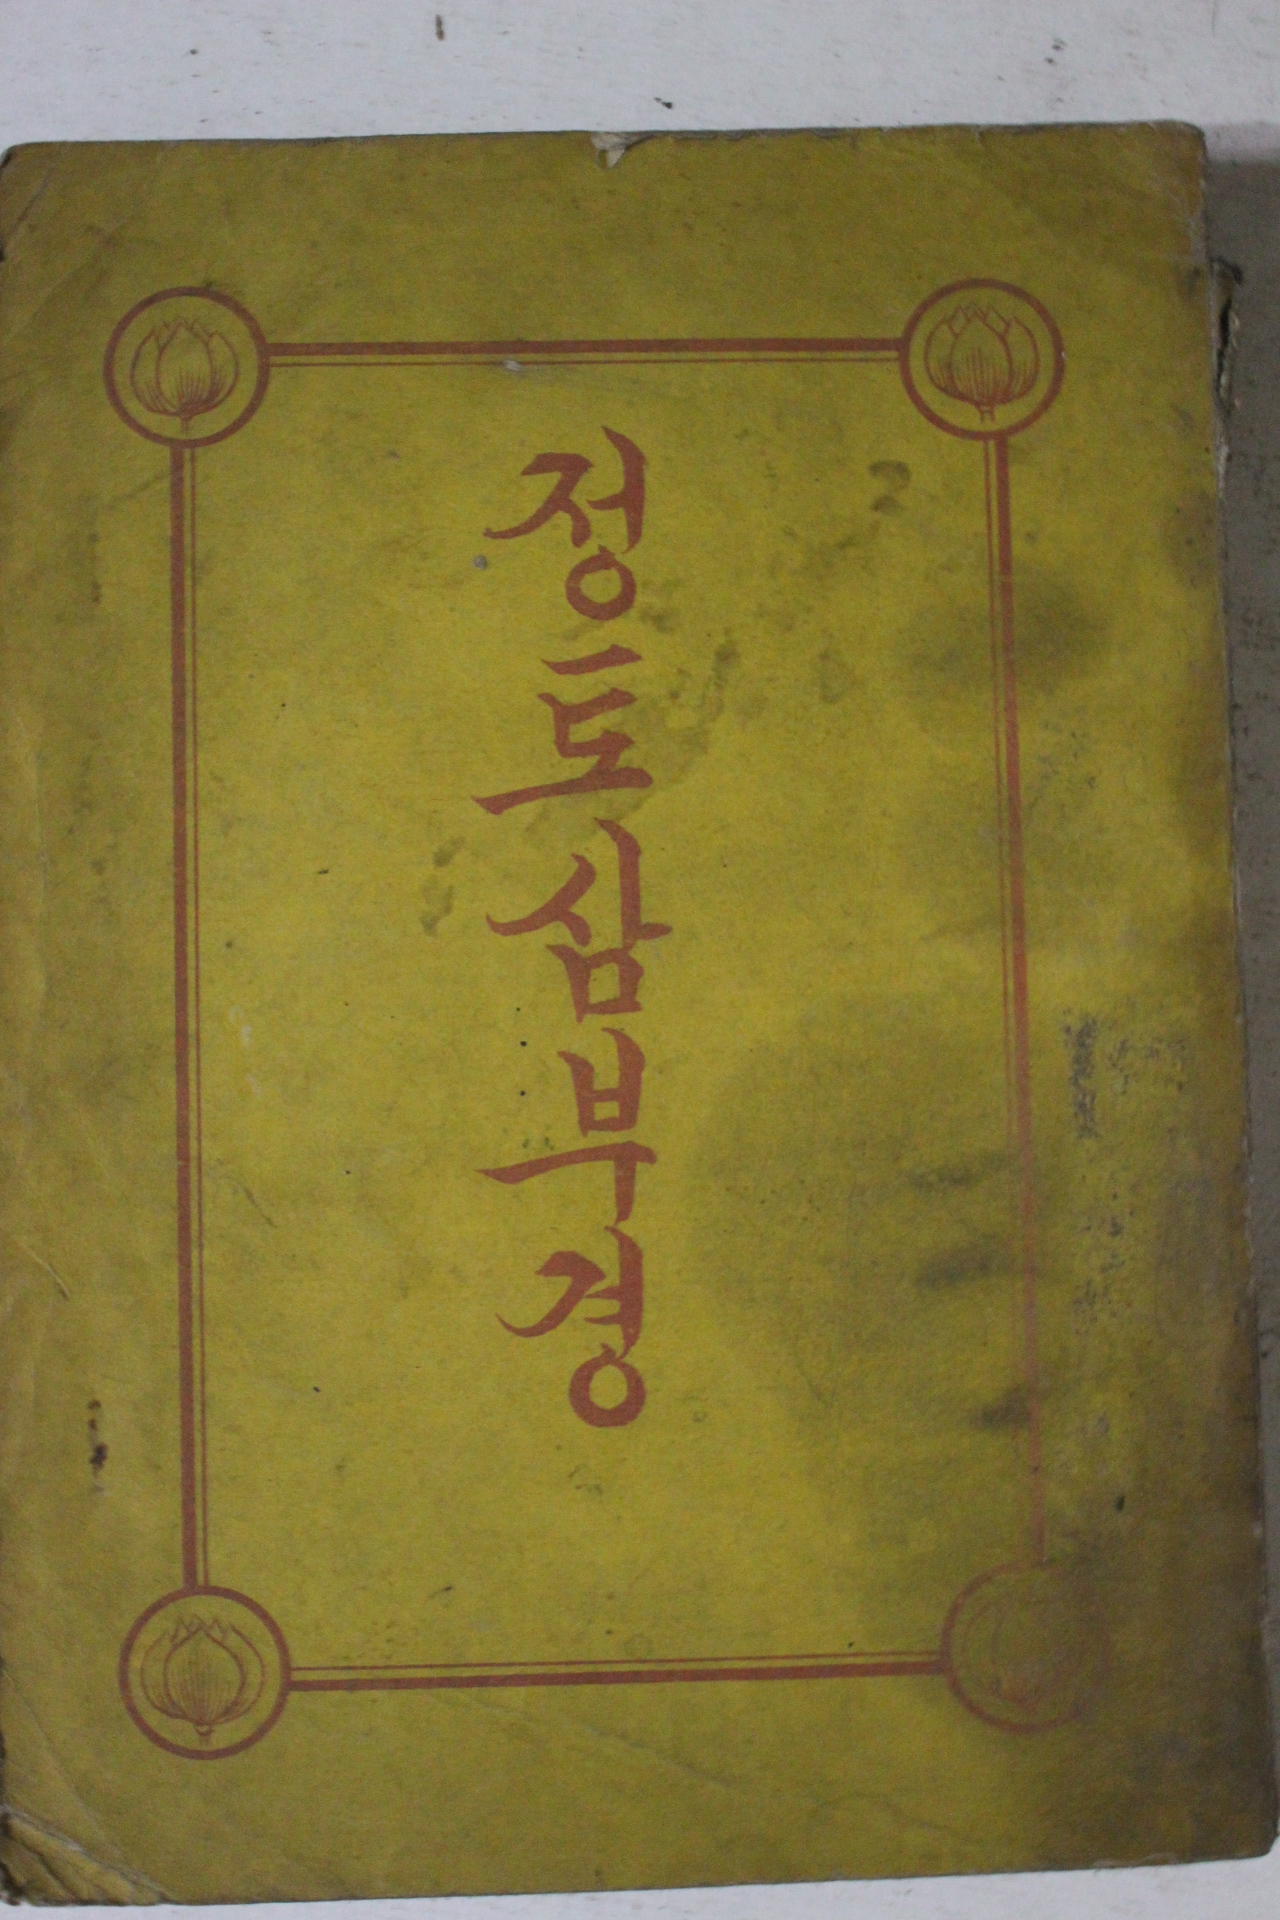 정도삼부경